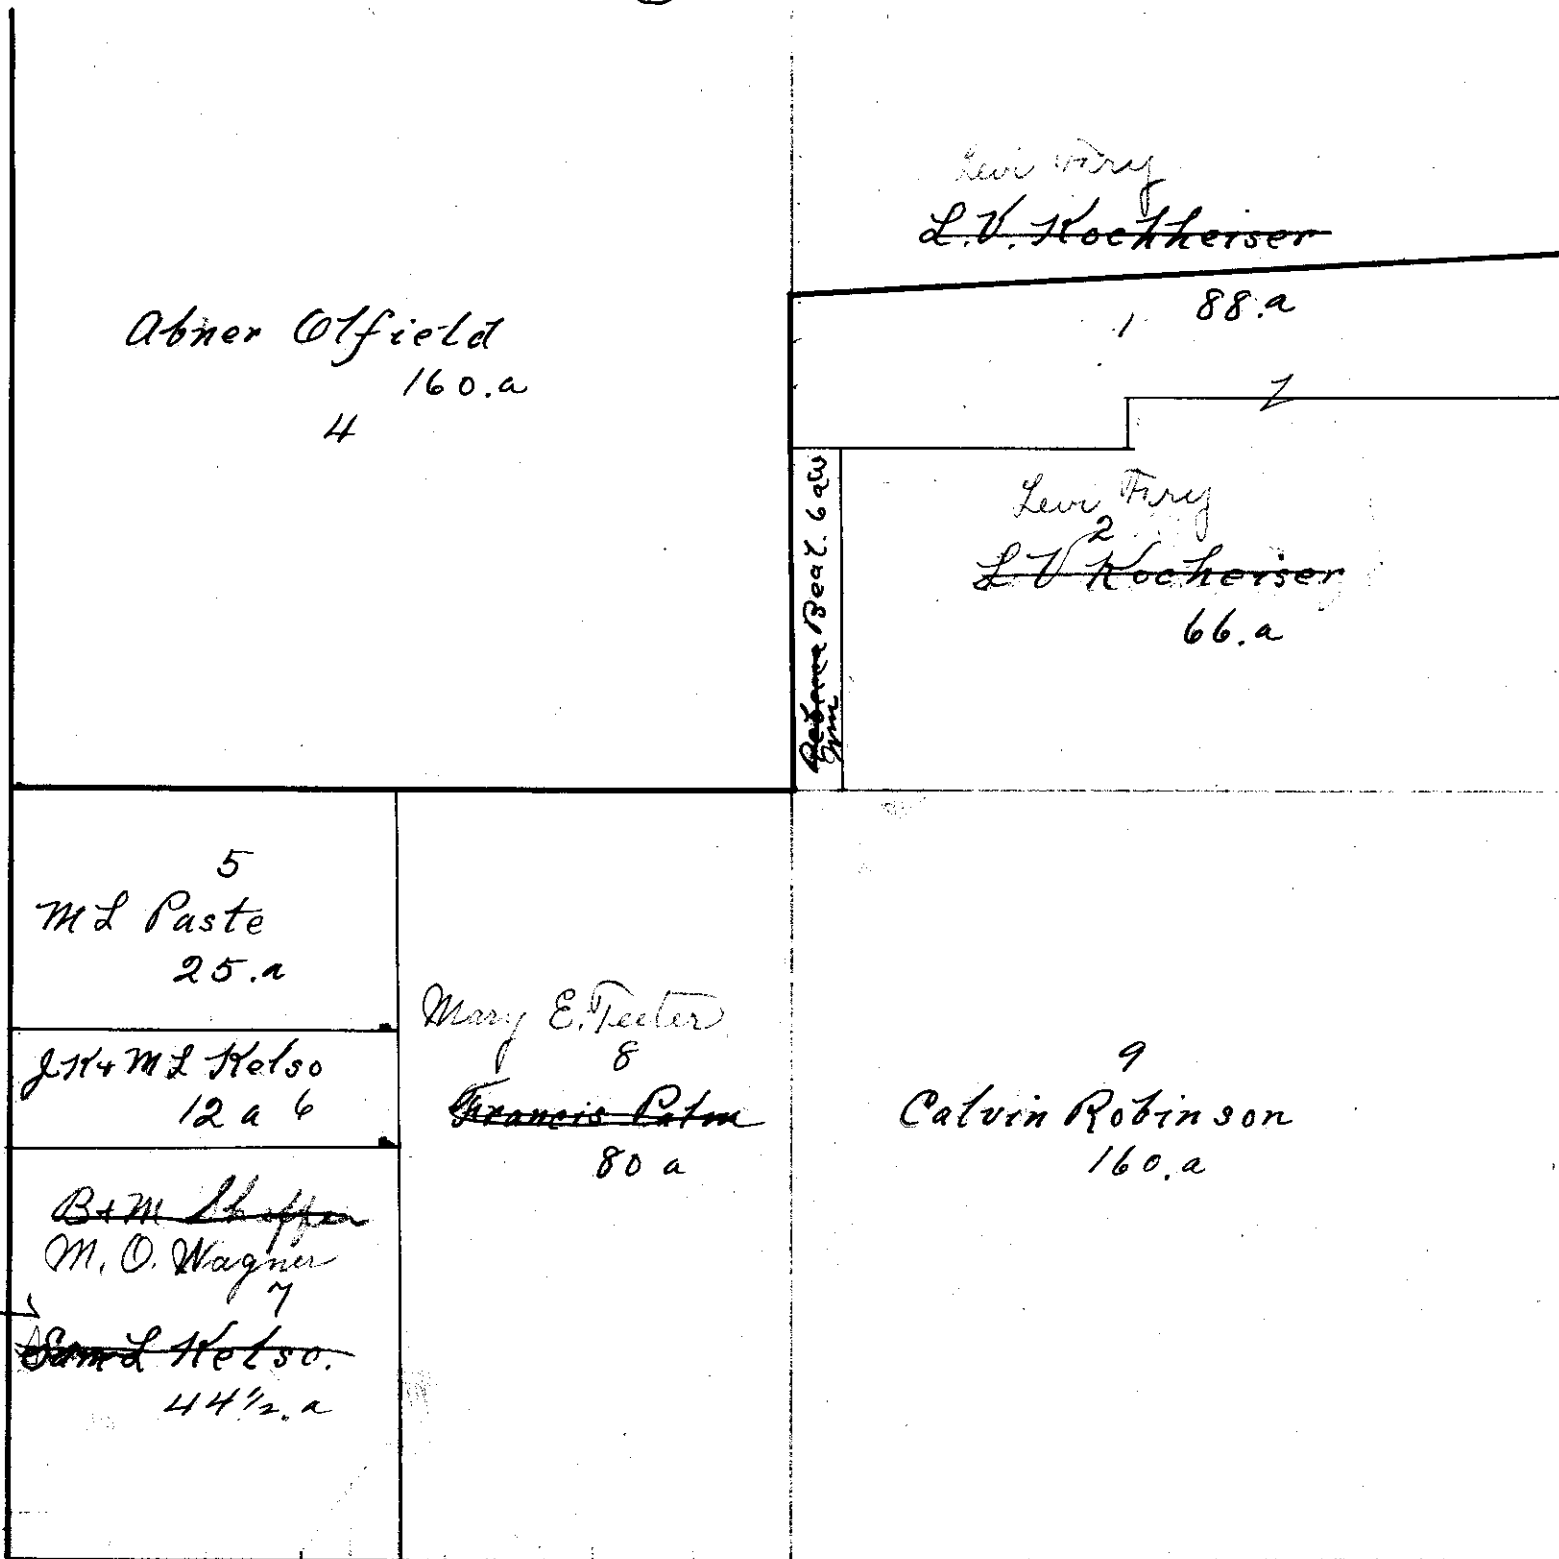 Abner Olfield
160.a
4
L.V. Kochheiser
88.a
1
Beal. 6 a
Levi
2
L V Kocheiser
66.a
5
M L Paste
25.a
J K + M L Kelso
12 a 6
B + M
M. O. Wagner
7
Sam L Kelso.
44 1/2.a
Mary E. Teeter
8
Francis Palm
80 a
9
Calvin Robinson
160.a